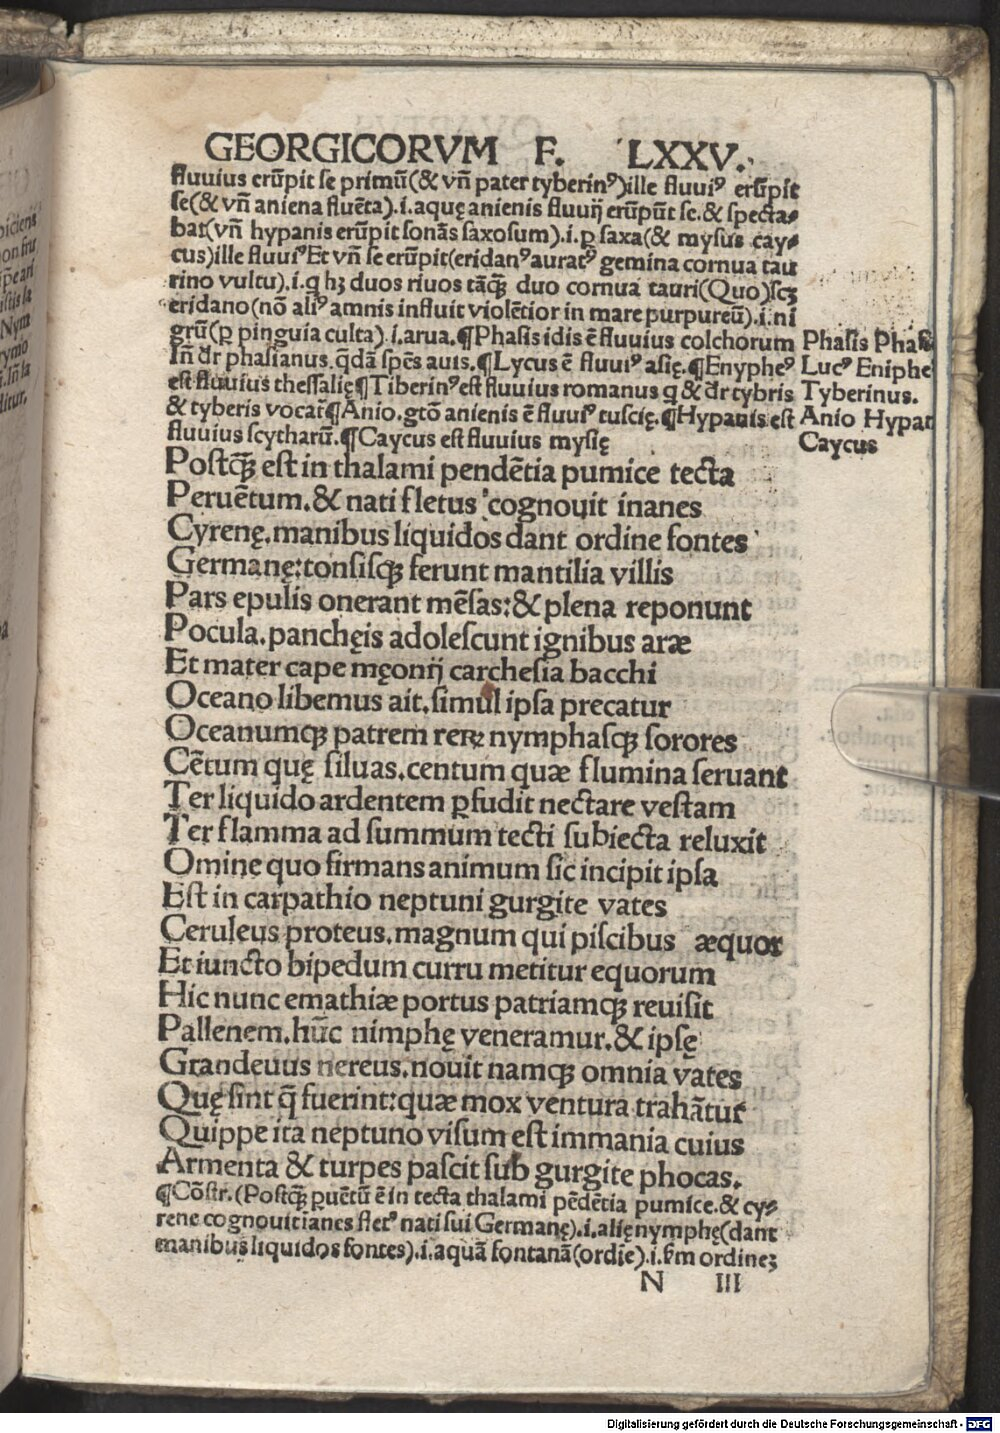 GEORGICORVM F. LXXV.
fluuius erūpit se primū(& vñ pater tyberinꝰ)ille fluuiꝰ erūpit
se(& vñ aniena fluēta).i.aquę anienis fluuij erūpūt se.& specta-
bat(vñ hypanis erūpit sonās saxosum).i.ꝑ saxa(& mysus cay-
cus)ille fluuiꝰ Et vñ se erūpit(eridanꝰ auratꝰ gemina cornua tau
rino vultu).i.q hꝫ duos riuos tāꝙ duo cornua tauri(Quo)scꝫ
eridano(nō aliꝰ amnis influit violētior in mare purpureū).i.ni
grū(ꝑ pinguia culta).i.arua.¶Phasis idis ē fluuius colchorum
Iñ dr phasianus.q̄dā spēs auis.¶Lycus ē fluuiꝰ asię.¶Enypheꝰ
est fluuius thessalię¶Tiberinꝰ est fluuius romanus q & dr tybris
& tyberis vocat̄¶Anio.gtō anienis ē fluuiꝰ tuscię.¶Hypanis est
fluuius scytharū.¶Caycus est fluuius mysię
Phasis Phasi
Lucꝰ Eniphe
Tyberinus.
Anio Hypan
Caycus
Postꝙ est in thalami pendētia pumice tecta
Peruētum.& nati fletus cognouit inanes
Cyrenę.manibus liquidos dant ordine fontes
Germanę:tonsisqꝫ ferunt mantilia villis
Pars epulis onerant mēsas:& plena reponunt
Pocula.panchęis adolescunt ignibus aræ
Et mater cape męonij carchesia bacchi
Oceano libemus ait.simul ipsa precatur
Oceanumqꝫ patrem reꝝ nymphasqꝫ sorores
Cētum quę siluas.centum quæ flumina seruant
Ter liquido ardentem ꝑfudit nectare vestam
Ter flamma ad summum tecti subiecta reluxit
Omine quo firmans animum sic incipit ipsa
Est in carpathio neptuni gurgite vates
Ceruleus proteus.magnum qui piscibus æquor
Et iuncto bipedum curru metitur equorum
Hic nunc emathiæ portus patriamqꝫ reuisit
Pallenem.hūc nimphę veneramur.& ipsę
Grandeuus nereus.nouit namqꝫ omnia vates
Quę sint q̄ fuerint:quæ mox ventura trahātur
Quippe ita neptuno visum est immania cuius
Armenta & turpes pascit sub gurgite phocas.
¶Cōstr.(Postꝙ ꝑuētū ē in tecta thalami pēdētia pumice.& cy-
rene cognouit ianes fletꝰ nati sui Germanę).i.alię nymphę(dant
manibus liquidos fontes).i.aquā fontanā(ordīe).i.ẜm ordinēꝫ
N III
Digitalisierung gefördert durch die Deutsche Forschungsgemeinschaft - DFG